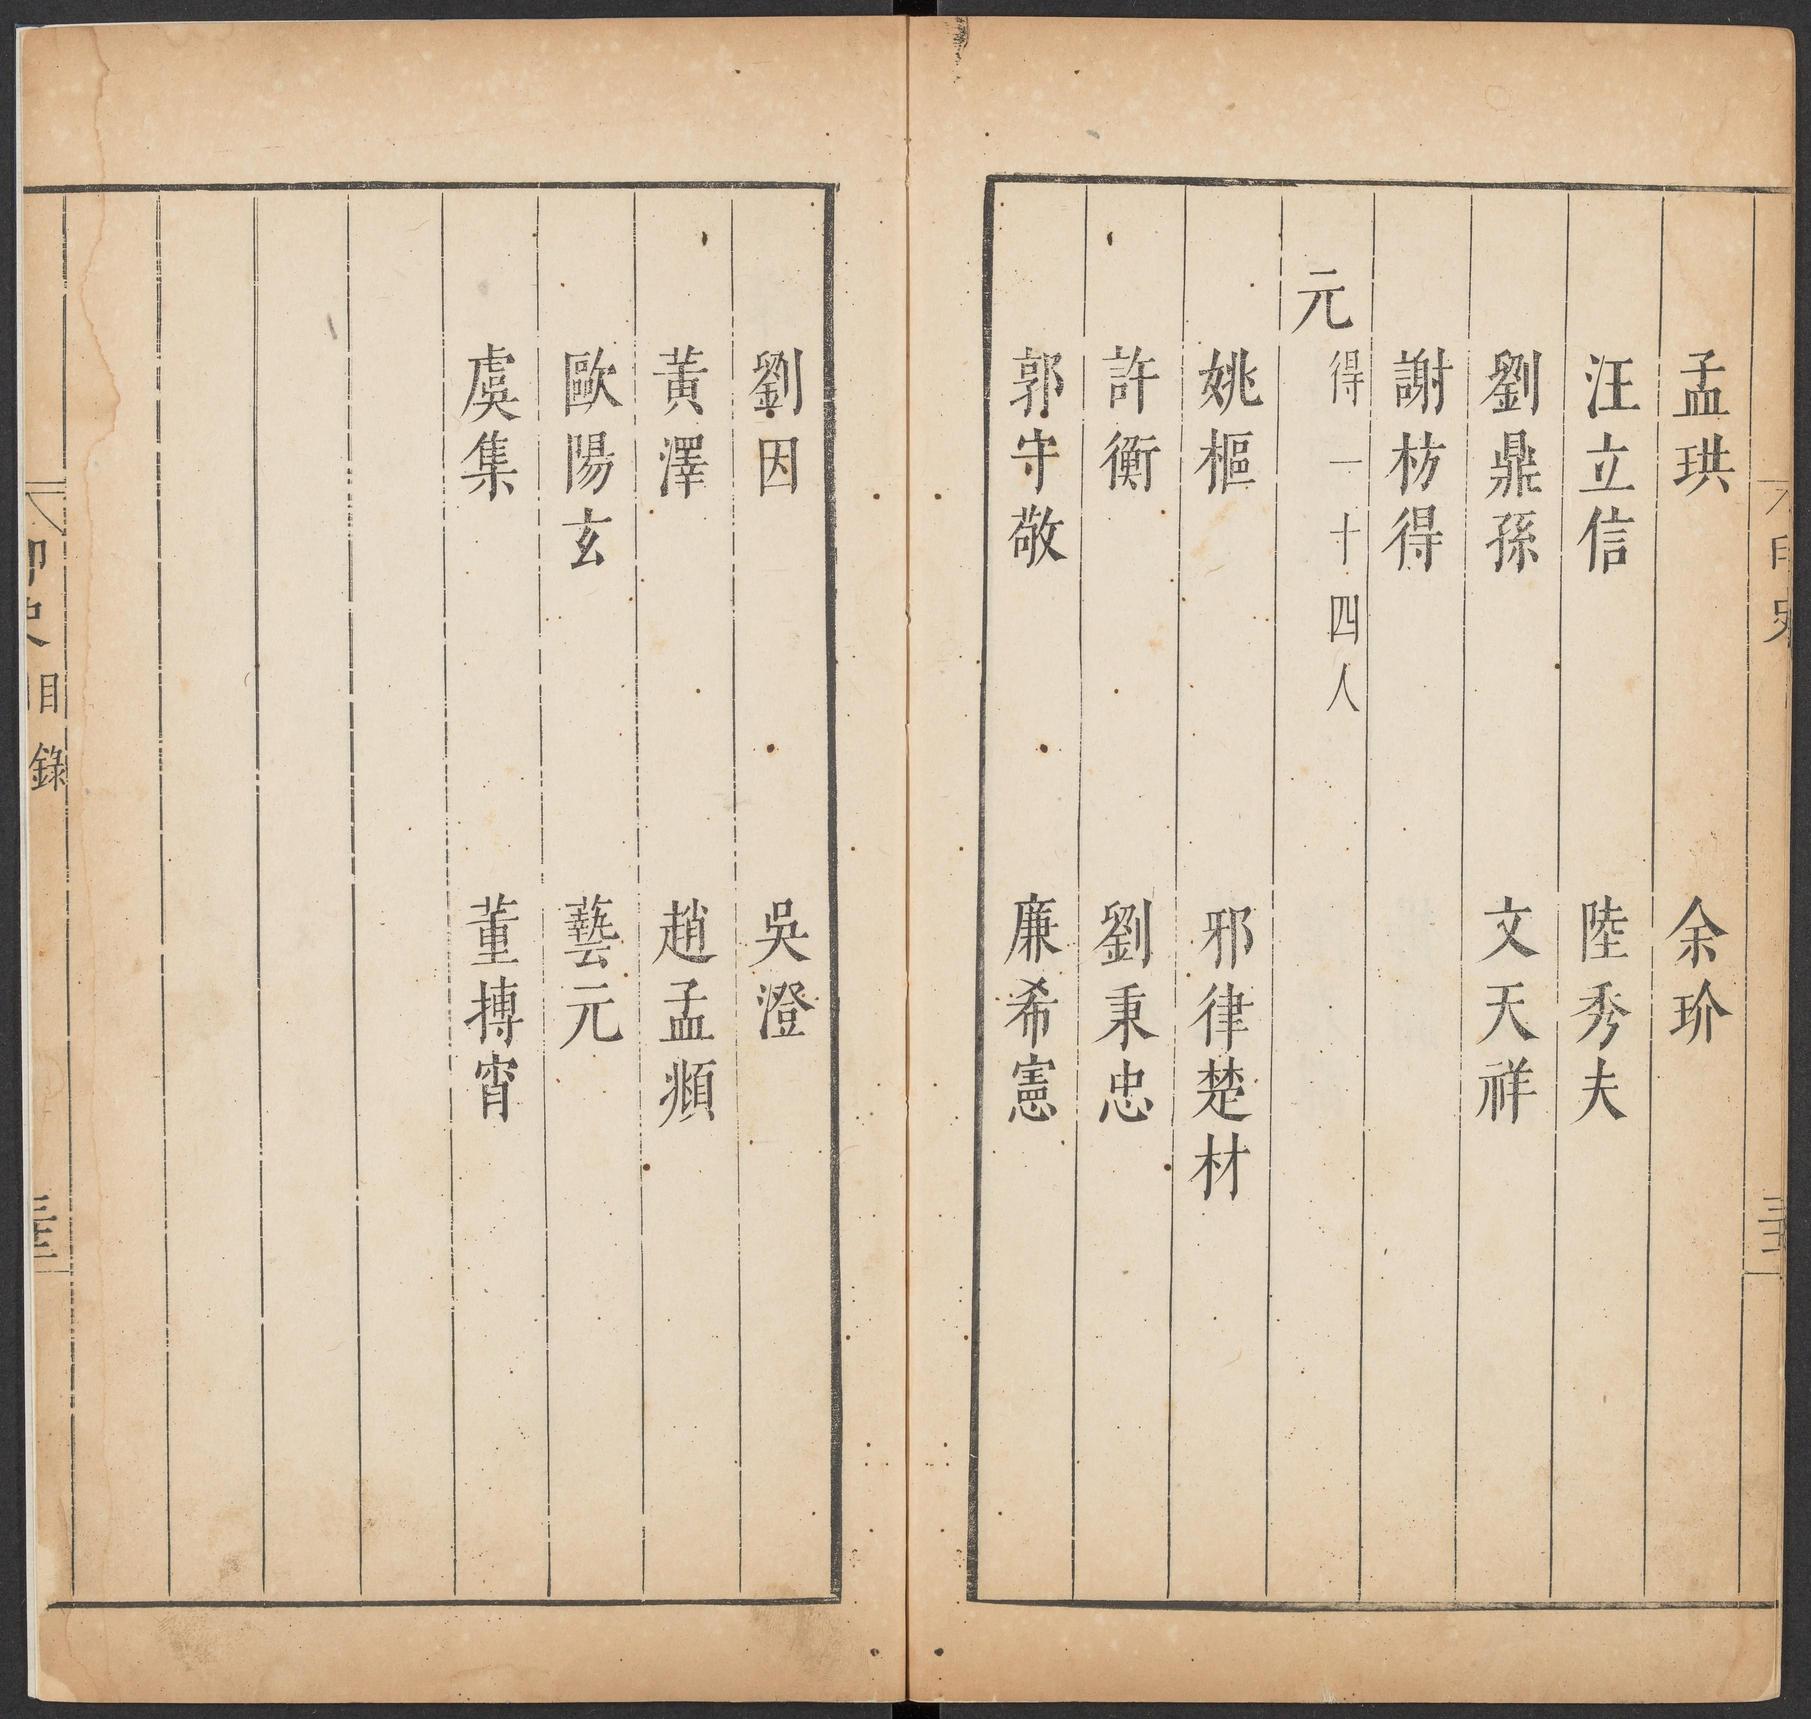 孟珙　余玠
汪立信　陸秀夫
劉鼎孫　文天祥
謝枋得
元　得一十四人
姚樞　邪律楚材
許衡　劉秉忠
郭守敬　廉希憲
劉因　吳澄
黃澤　趙孟頫
歐陽玄　藝元
虞集　董摶宵
目錄